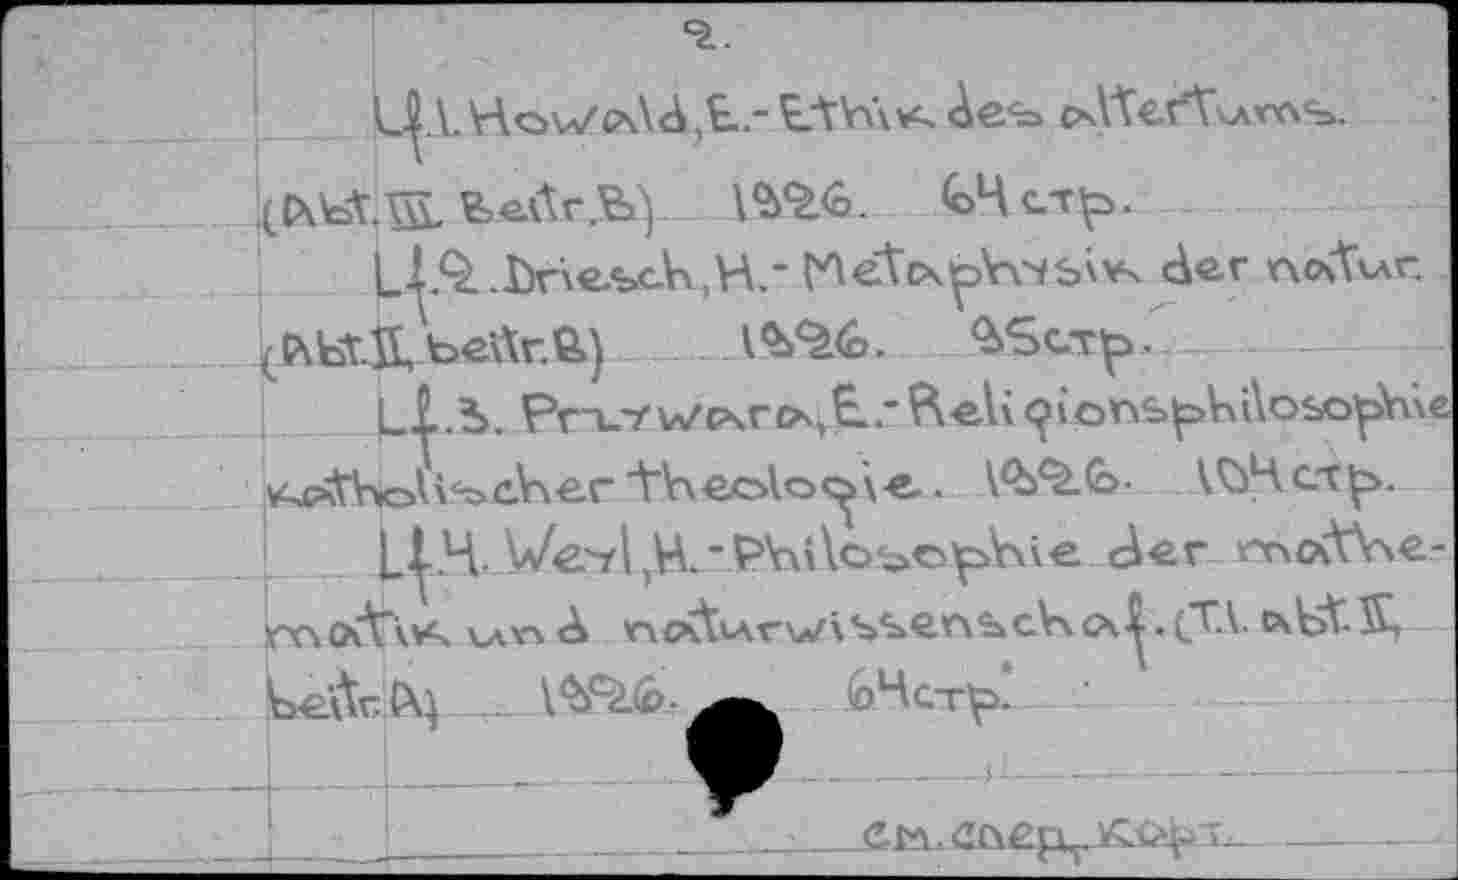 2.
Lf.1. Howald, E.- Ethik des altertums.
(Abt. III. Beitr. B) 1926. 64 стр.
Lf.2. Driesch, H.- Metaphysik der natur.
(Abt. II, beitr. B) 1926. 95 стр.
Lf.3. Przywara, E.- Religionsphilosophie
katholischer theologie. 1926. 104 стр.
Lf.4. Weyl, H.- Philosophie der mathe-
matik und naturwissenschaf. (T.1. abt. II,
beitr. A) 1926. 64 стр.
см. след. карт.